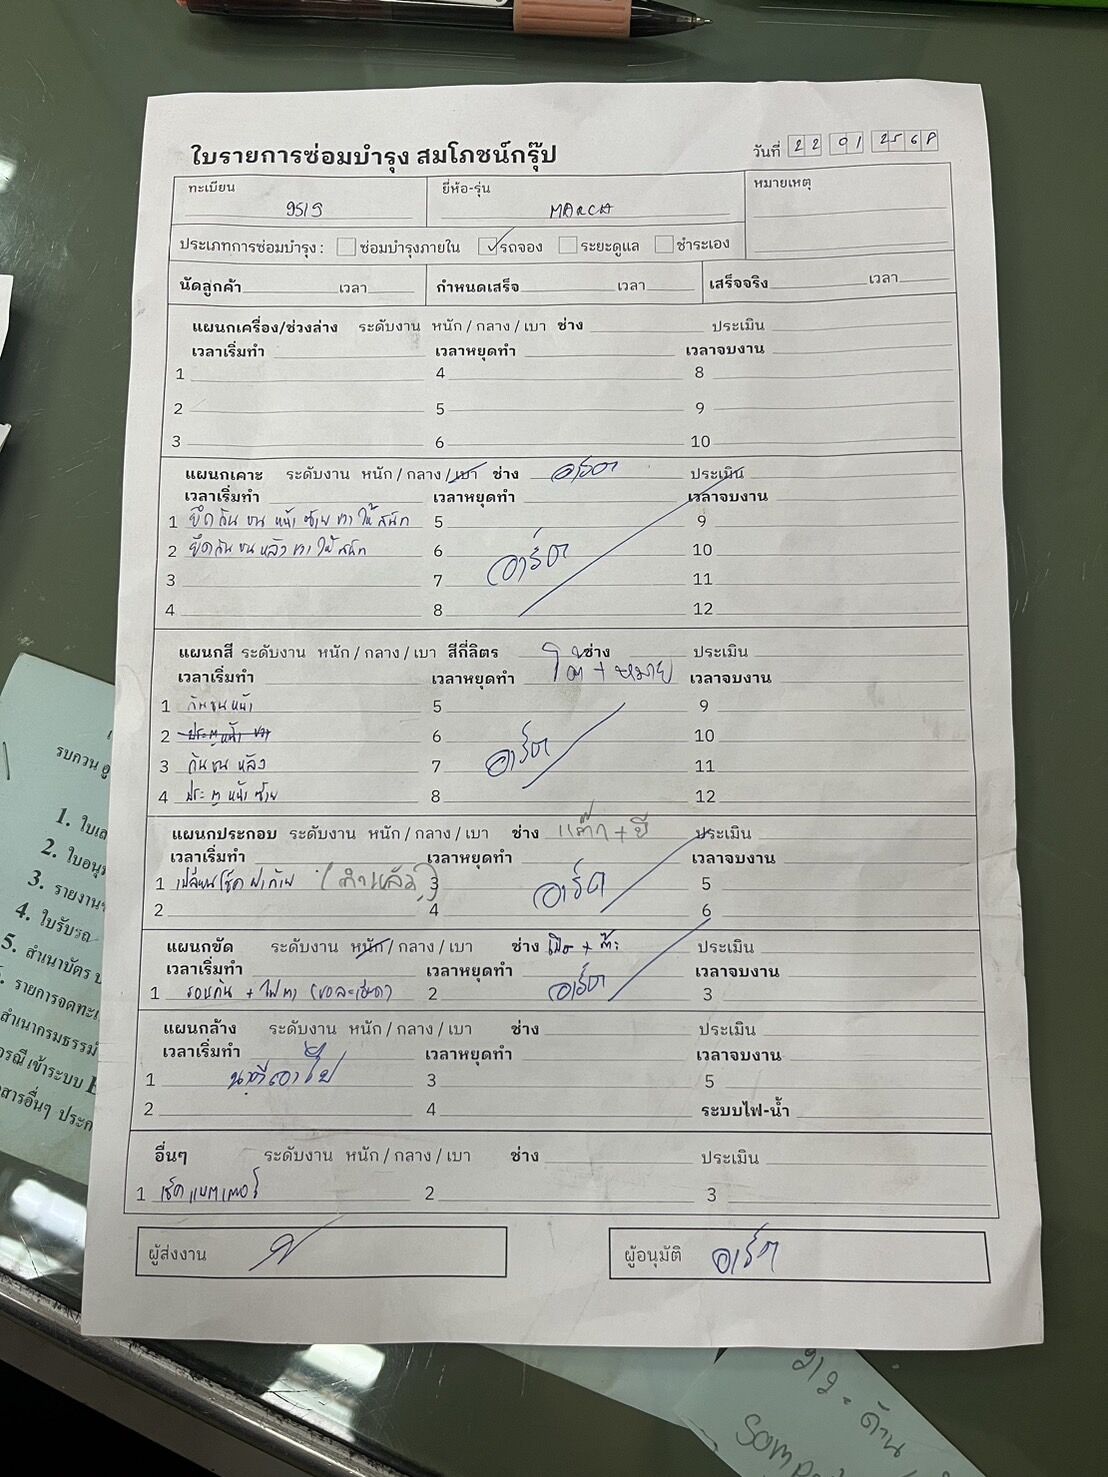 ใบรายการซ่อมบำรุง สมโภชน์กรุ๊ป
วันที่ 22 01 2568
ทะเบียน 9519
ยี่ห้อ-รุ่น MARCH
หมายเหตุ
ประเภทการซ่อมบำรุง : ซ่อมบำรุงภายใน ✓ รถจอง ระยะดูแล ชำระเอง
นัดลูกค้า เวลา กำหนดเสร็จ เวลา เสร็จจริง เวลา
แผนกเครื่อง/ช่วงล่าง ระดับงาน หนัก / กลาง / เบา ช่าง ประเมิน
เวลาเริ่มทำ เวลาหยุดทำ เวลาจบงาน
1 4 8
2 5 9
3 6 10
แผนกเคาะ ระดับงาน หนัก / กลาง / เบา ช่าง อาร์ต ประเมิน
เวลาเริ่มทำ เวลาหยุดทำ เวลาจบงาน
1 ยึดกันชนหน้าซ้ายขวาให้สนิท 5 9
2 ยึดกันชนหลังขวาให้สนิท 6 10
อาร์ต
3 7 11
4 8 12
แผนกสี ระดับงาน หนัก / กลาง / เบา สีกี่ลิตร ช่าง ประเมิน
โต้ + หมาย
เวลาเริ่มทำ เวลาหยุดทำ เวลาจบงาน
1 กันชนหน้า 5 9
2 ประตูหน้าขวา 6 10
อาร์ต
3 กันชนหลัง 7 11
4 ประตูหน้าซ้าย 8 12
แผนกประกอบ ระดับงาน หนัก / กลาง / เบา ช่าง ประเมิน
เวลาเริ่มทำ เวลาหยุดทำ เวลาจบงาน
1 เปลี่ยนโช๊คฝาท้าย (ทำแล้ว) 3 อาร์ต 5
2 4 6
แผนกขัด ระดับงาน หนัก / กลาง / เบา ช่าง ประเมิน
เวลาเริ่มทำ เวลาหยุดทำ เวลาจบงาน
1 รอบคัน + ไฟตา (ขอละเอียด) 2 อาร์ต 3
แผนกล้าง ระดับงาน หนัก / กลาง / เบา ช่าง ประเมิน
เวลาเริ่มทำ เวลาหยุดทำ เวลาจบงาน
1 3 5
2 4 ระบบไฟ-น้ำ
อื่นๆ ระดับงาน หนัก / กลาง / เบา ช่าง ประเมิน
1 เช็คแบตเตอรี่ 2 3
ผู้ส่งงาน
ผู้อนุมัติ อาร์ต
รบกวน
1. ใบเส
2. ใบอนุ
3. รายงาน
4. ใบรับรถ
5. สำเนาบัตร
รายการจดทะเ
สำเนากรมธรรม์
กรณีเข้าระบบ
สารอื่นๆ ประก